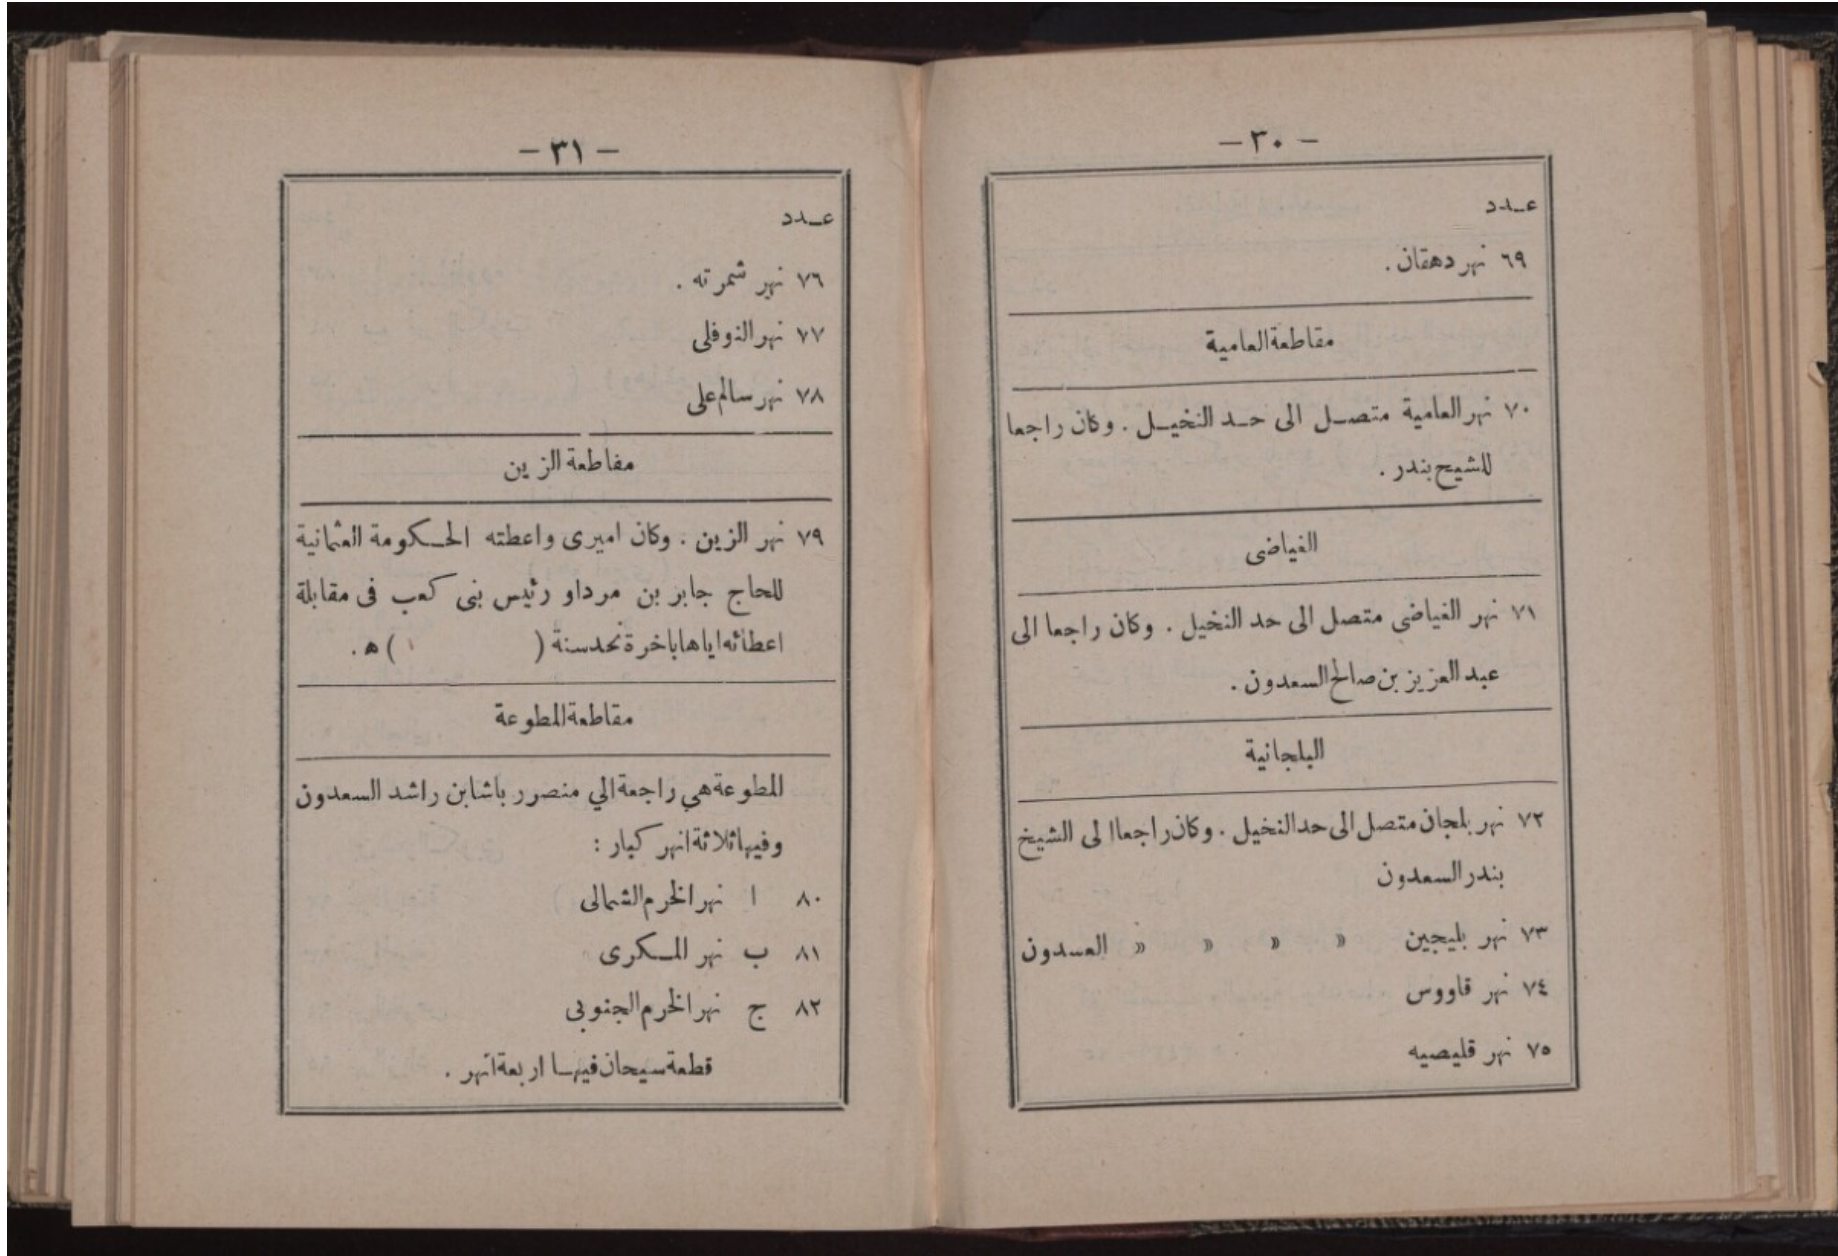 — ٣٠ —
عـدد
٦٩ نهر دهقان .
مقاطعة العامية
٧٠ نهر العامية متصـل الى حـد النخيـل . وكان راجعا
للشيح بندر .
الفياضى
٧١ نهر الفياضى متصل الى حد النخيل . وكان راجعا الى
عبد العزيز بن صالح السعدون .
البلجانية
٧٢ نهر بلجان متصل الى حد النخيل . وكان راجعا الى الشيخ
بندر السعدون
٧٣ نهر بليجين » » » » العسدون
٧٤ نهر قاووس
٧٥ نهر قليصيه
— ٣١ —
عـدد
٧٦ نهر شمرته .
٧٧ نهر النوفلى
٧٨ نهر سالم على
مقاطعة الزين
٧٩ نهر الزين . وكان اميرى واعطته الحـكومة العثمانية
للحاج جابر بن مرداو رئيس بنى كعب فى مقابلة
اعطائه اياها باخرة نحدسنة ( ١ ) ه .
مقاطعة المطوعة
المطوعة هي راجعة الي منصرر باشا بن راشد السعدون
وفيها ثلاثة انهر كبار :
٨٠ ا نهر الخرم الشمالى
٨١ ب نهر المـكرى
٨٢ ج نهر الخرم الجنوبى
قطعة سيحان فيهـا اربعة انهر .